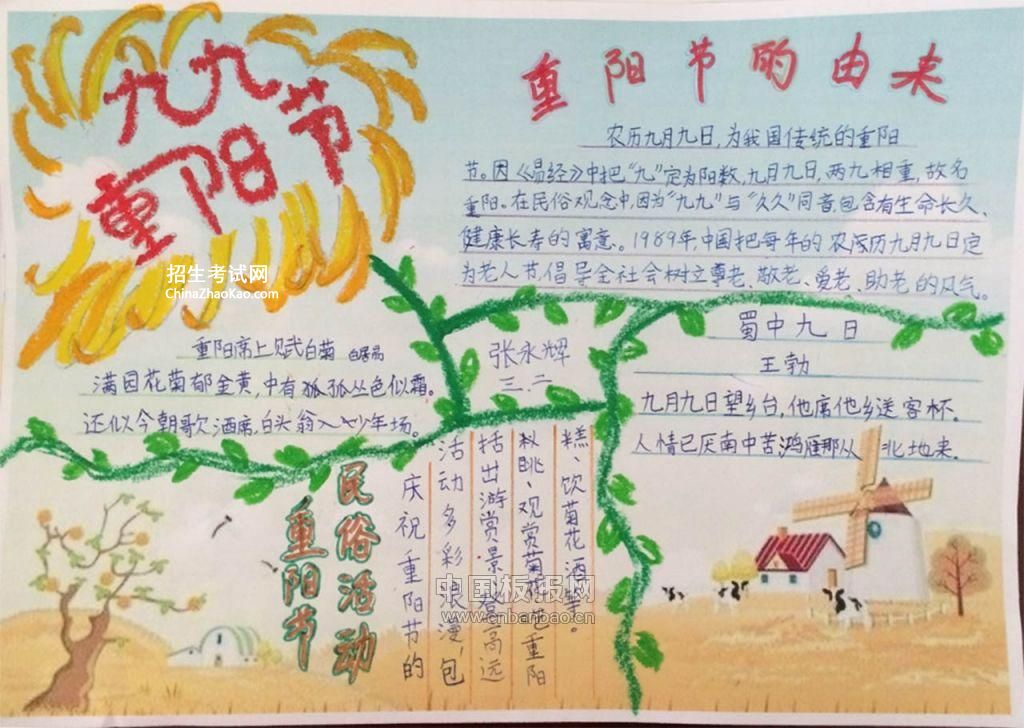 九九
重阳节
招生考试网
ChinaZhaoKao.com
重阳节的由来
农历九月九日,为我国传统的重阳
节。因《易经》中把“九”定为阳数,九月九日,两九相重,故名
重阳。在民俗观念中,因为“九九”与“久久”同音,包含有生命长久、
健康长寿的寓意。1989年,中国把每年的农历九月九日定
为老人节倡导全社会树立尊老、敬老、爱老、助老的风气。
重阳席上赋白菊 白居易
满园花菊郁金黄,中有孤孤丛色似霜。
还似今朝歌酒席,白头翁入少年场。
张永辉
三.二
蜀中九日
王勃
九月九日望乡台,他席他乡送客杯。
人情已厌南中苦鸿雁那从北地来.
重阳节
民俗活动
庆祝重阳节的
活动多彩浪漫,包
括出游赏景、登高远
眺、观赏菊花重阳
糕、饮菊花酒等。
中国板报网
www.cnbanbao.cn